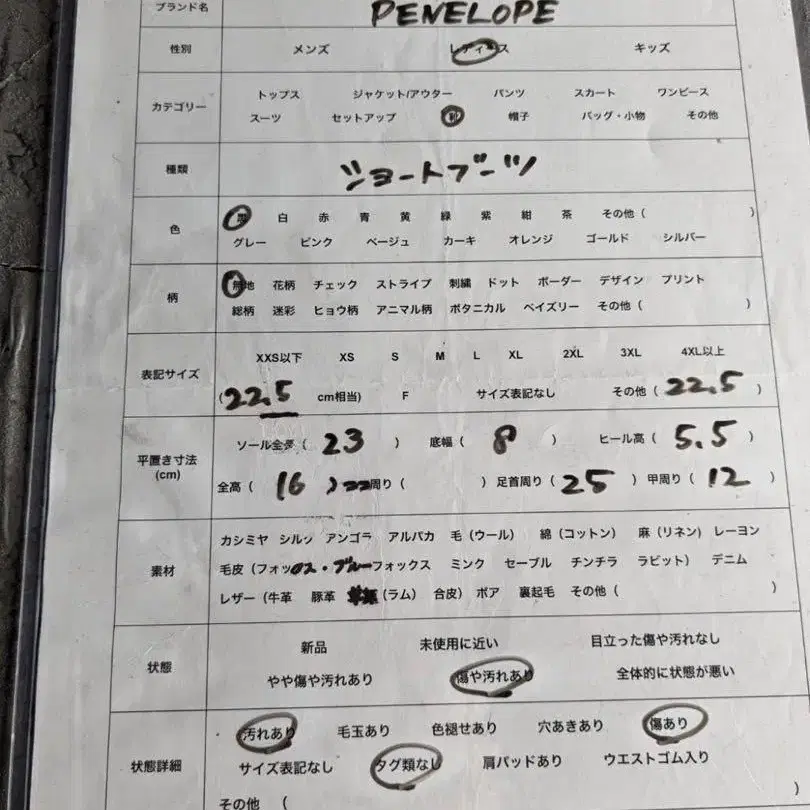 ブランド名 PENELOPE
性別 メンズ レディース キッズ
カテゴリー トップス ジャケット/アウター パンツ スカート ワンピース
スーツ セットアップ 靴 帽子 バッグ・小物 その他
種類 ショートブーツ
色 黒 白 赤 青 黄 緑 紫 紺 茶 その他 ( )
グレー ピンク ベージュ カーキ オレンジ ゴールド シルバー
柄 無地 花柄 チェック ストライプ 刺繍 ドット ボーダー デザイン プリント
総柄 迷彩 ヒョウ柄 アニマル柄 ボタニカル ペイズリー その他 ( )
表記サイズ XXS以下 XS S M L XL 2XL 3XL 4XL以上
(22.5 cm相当) F サイズ表記なし その他 ( 22.5 )
平置き寸法 (cm) ソール全長 ( 23 ) 底幅 ( 8 ) ヒール高 ( 5.5 )
全高 ( 16 ) 周り ( ) 足首周り ( 25 ) 甲周り ( 12 )
素材 カシミヤ シルク アンゴラ アルパカ 毛 (ウール) 綿 (コットン) 麻 (リネン) レーヨン
毛皮 (フォックス・ブルーフォックス ミンク セーブル チンチラ ラビット) デニム
レザー (牛革 豚革 (ラム) 合皮) ボア 裏起毛 その他 ( )
状態 新品 未使用に近い 目立った傷や汚れなし
やや傷や汚れあり 傷や汚れあり 全体的に状態が悪い
状態詳細 汚れあり 毛玉あり 色褪せあり 穴あきあり 傷あり
サイズ表記なし タグ類なし 肩パッドあり ウエストゴム入り
その他 ( )